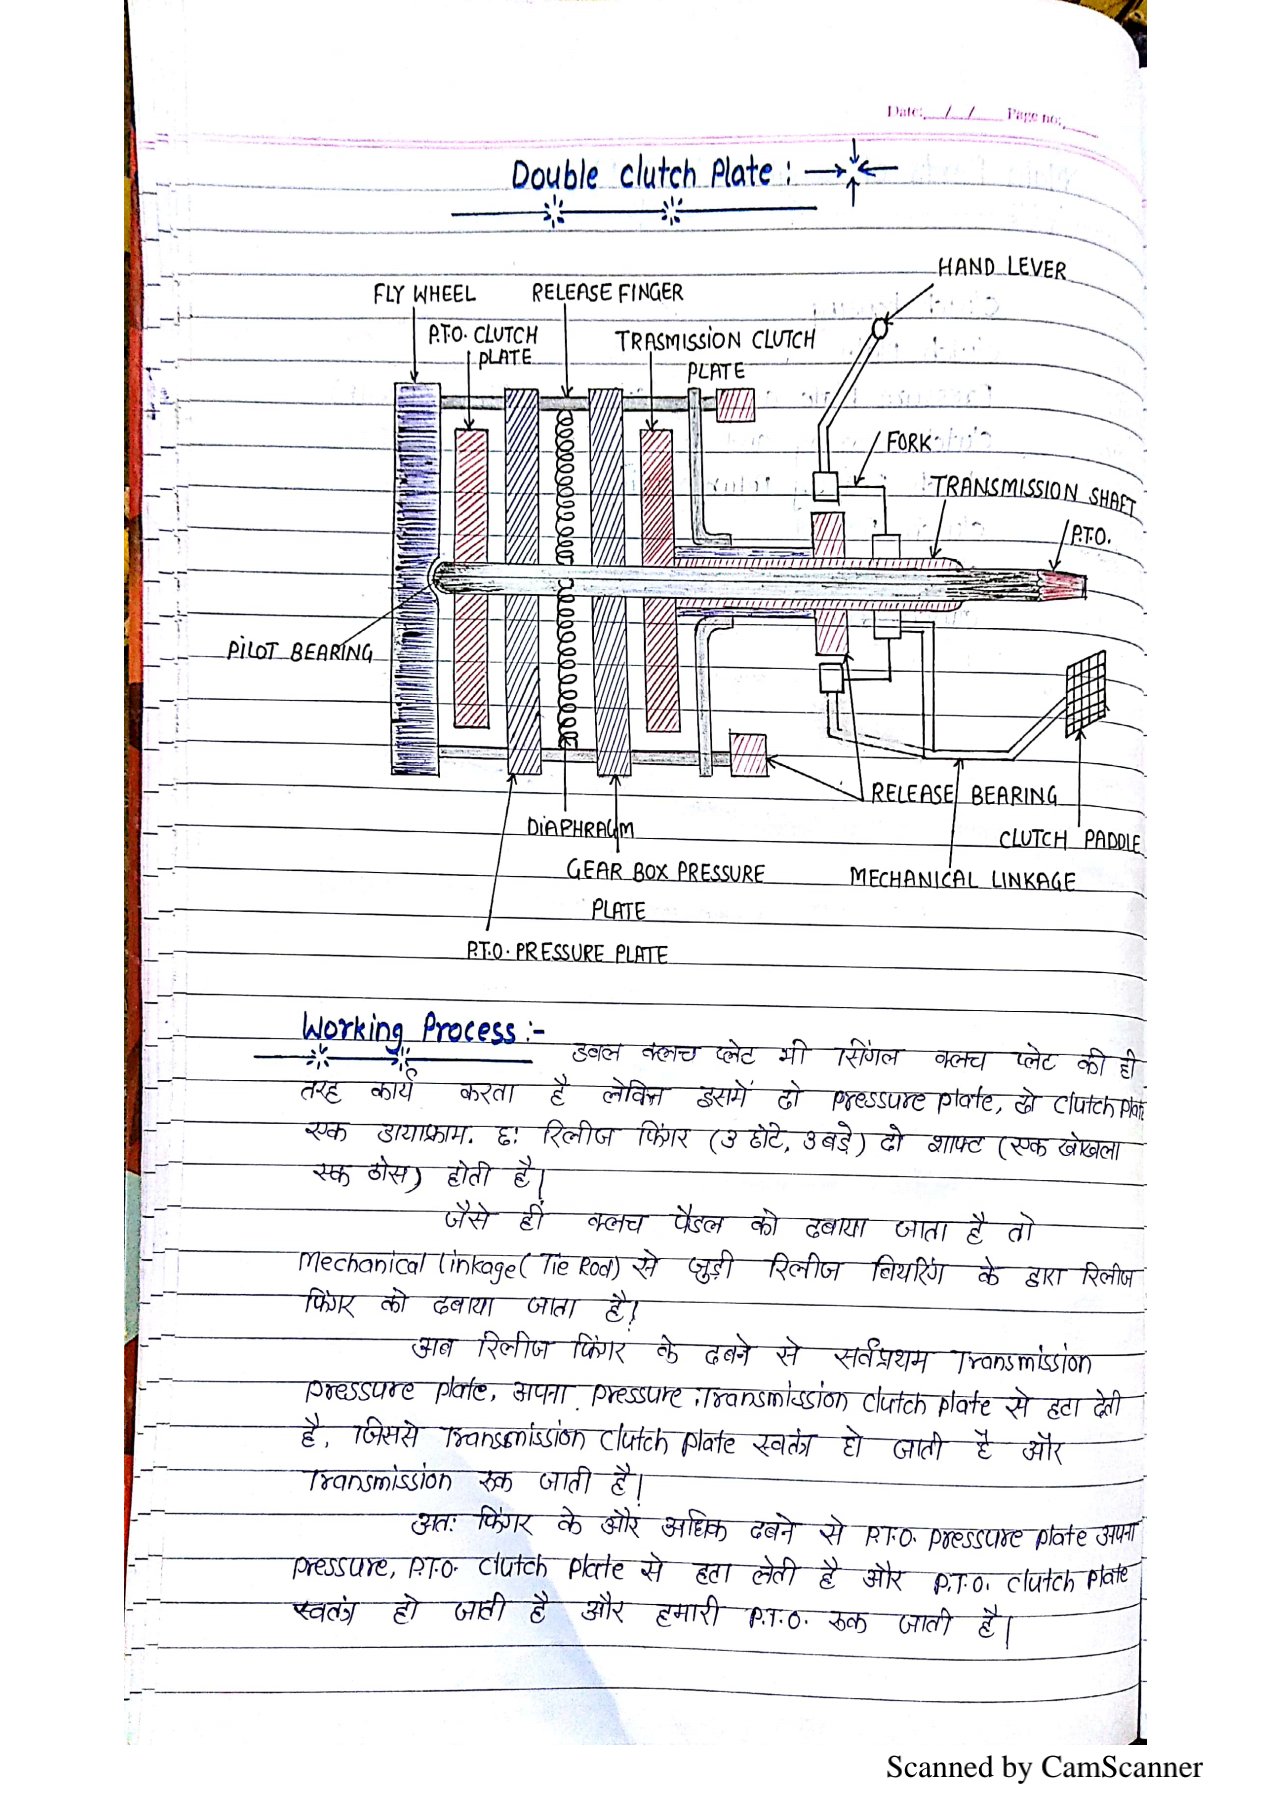 Date:__/__/____ Page no:____
Double Clutch Plate :
HAND LEVER
FLY WHEEL
RELEASE FINGER
P.T.O. CLUTCH
PLATE
TRASMISSION CLUTCH
PLATE
FORK
TRANSMISSION SHAFT
P.T.O.
PILOT BEARING
RELEASE BEARING
DIAPHRAGM
CLUTCH PADDLE
GEAR BOX PRESSURE
PLATE
MECHANICAL LINKAGE
P.T.O. PRESSURE PLATE
Working Process :-
डबल क्लच प्लेट भी सिंगल क्लच प्लेट की ही
तरह कार्य करता है लेकिन इसमें दो pressure plate, दो Clutch plate
एक डायाफ्राम. छः रिलीज फिंगर (3 छोटे, 3 बड़े) दो शाफ्ट (एक खोखला
एक ठोस) होती है|
जैसे ही क्लच पैडल को दबाया जाता है तो
Mechanical linkage (Tie Rod) से जुड़ी रिलीज बियरिंग के द्वारा रिलीज
फिंगर को दबाया जाता है|
अब रिलीज फिंगर के दबने से सर्वप्रथम Transmission
pressure plate, अपना pressure Transmission Clutch plate से हटा देती
है, जिससे Transmission Clutch plate स्वतंत्र हो जाती है और
Transmission रुक जाती है|
अतः फिंगर के और अधिक दबने से P.T.O. pressure plate अपना
pressure, P.T.O. Clutch plate से हटा लेती है और P.T.O. Clutch plate
स्वतंत्र हो जाती है और हमारी P.T.O. रुक जाती है|
Scanned by CamScanner